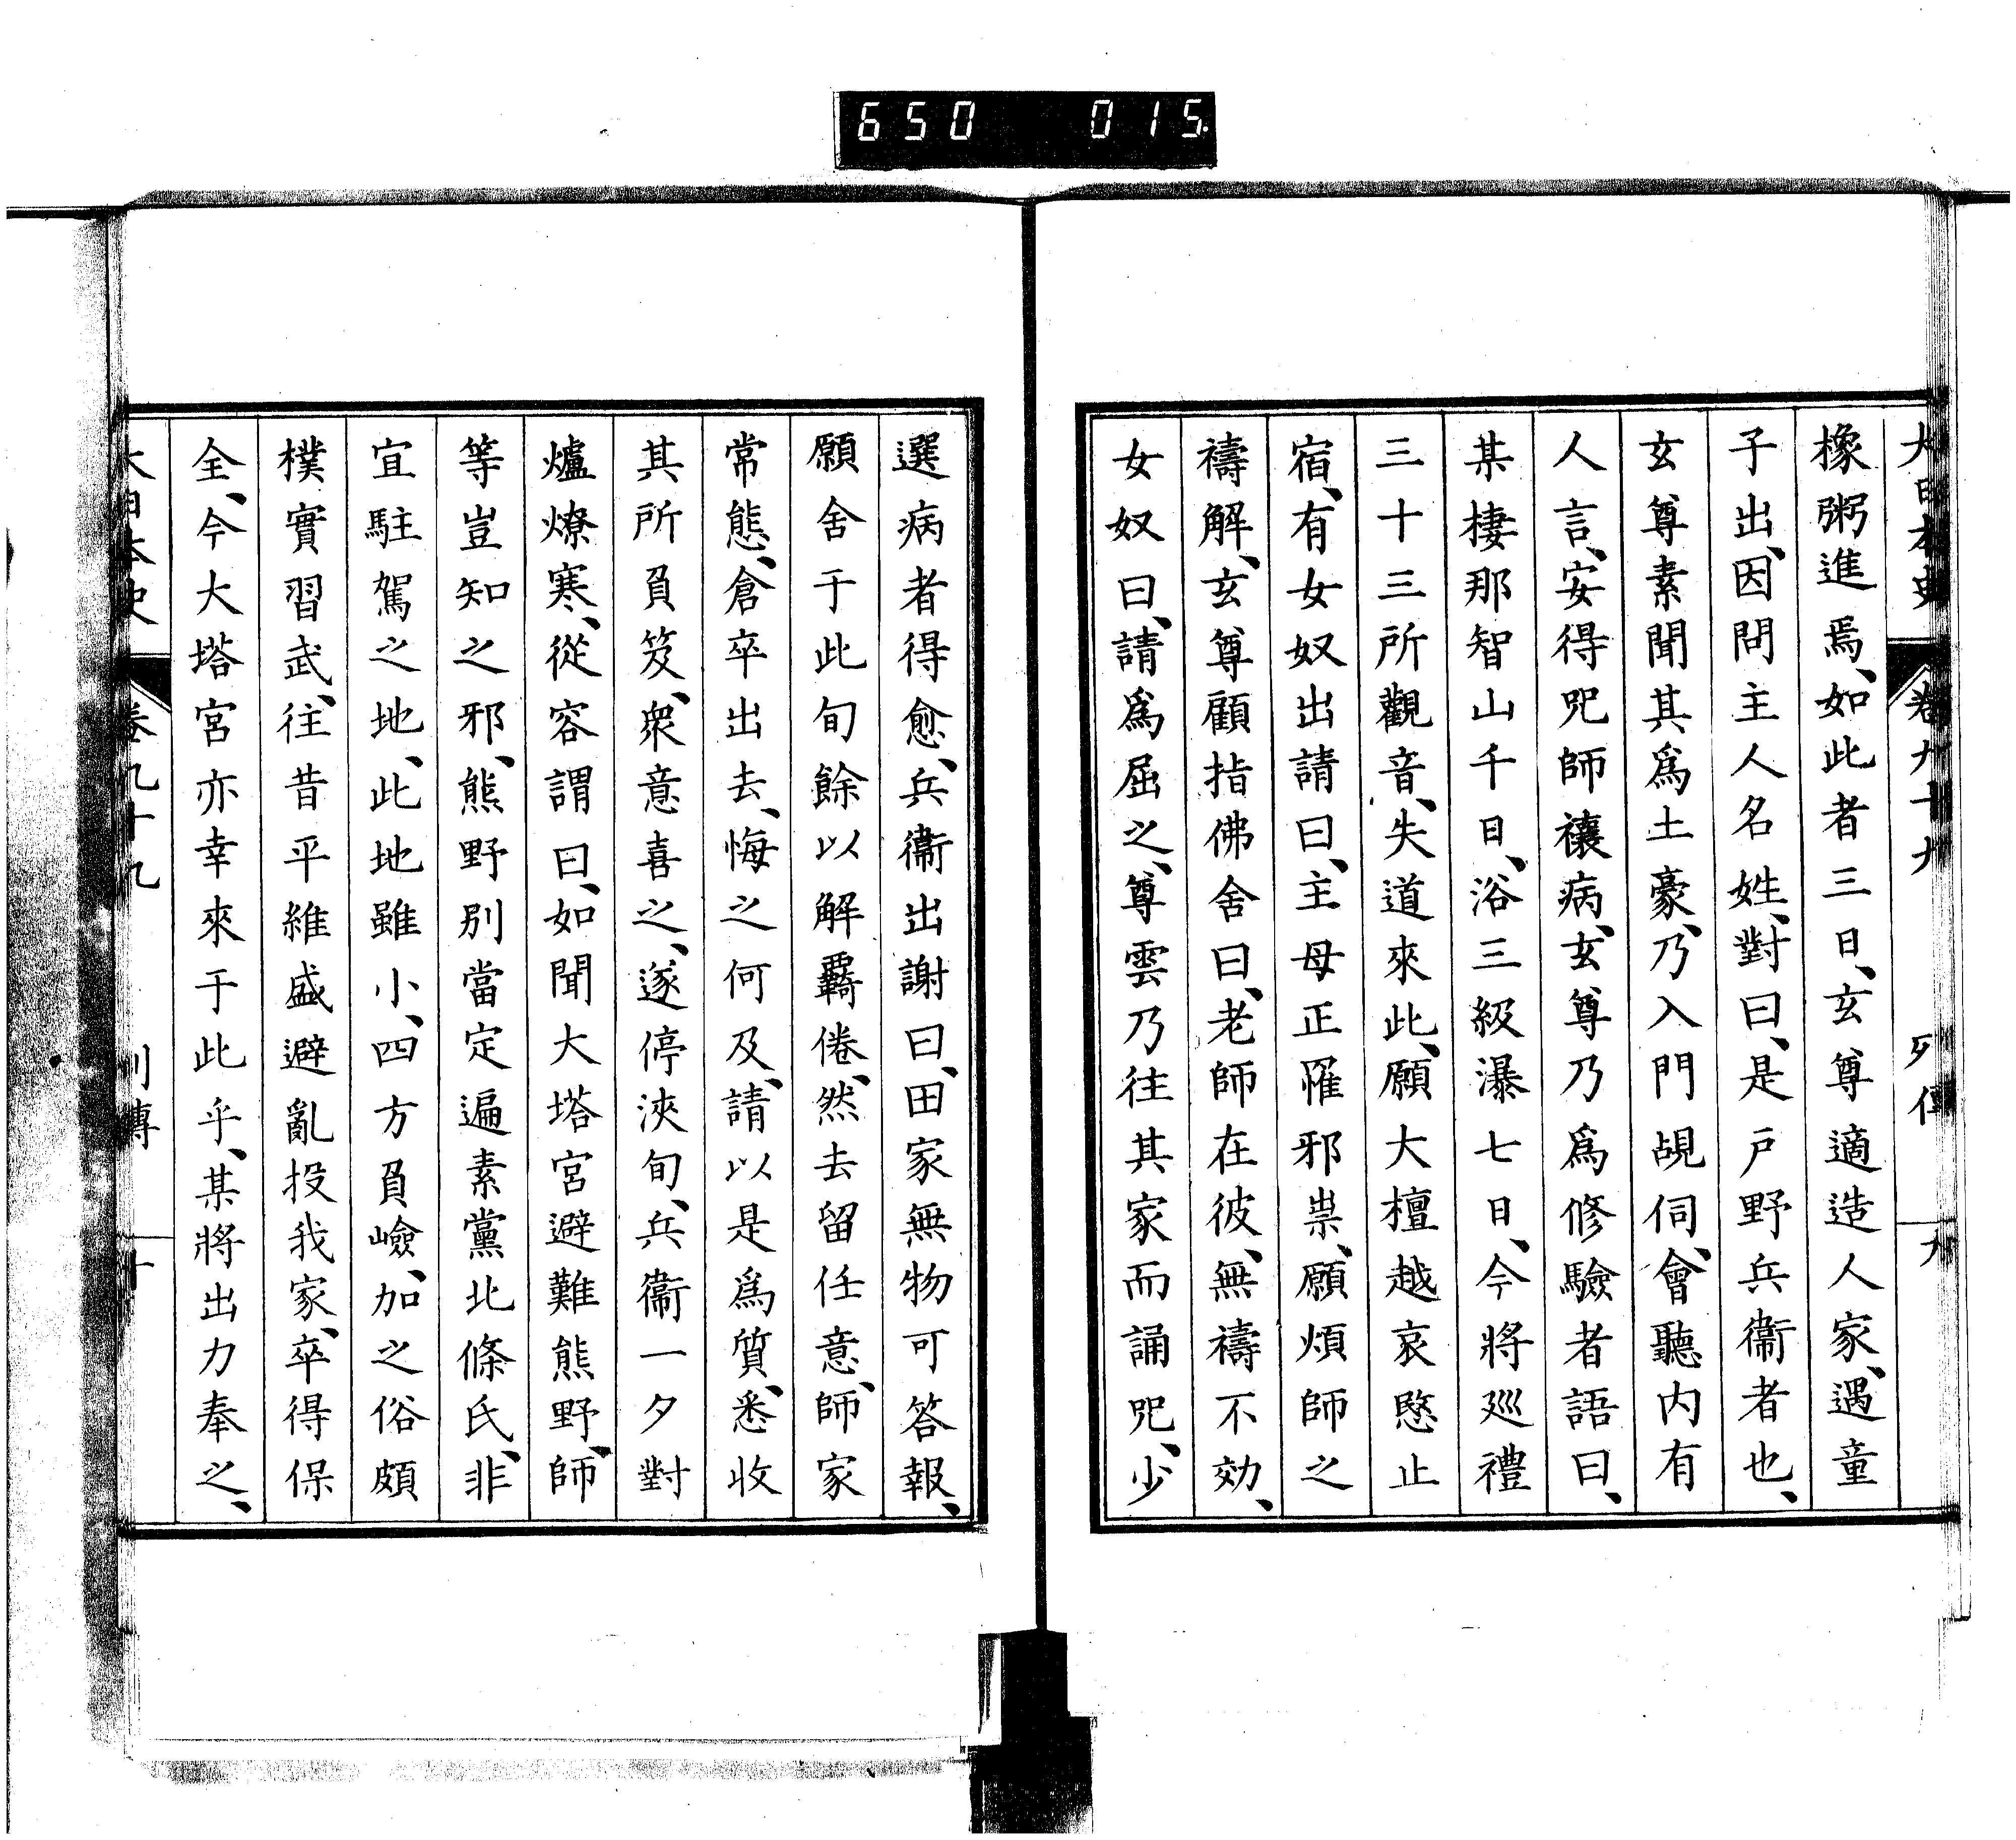 650 015.
大日本史 卷九十九 列傳 九
橡粥進焉、如此者三日、玄尊適造人家、遇童
子出、因問主人名姓、對曰、是戸野兵衞者也、
玄尊素聞其爲土豪、乃入門覘伺、會聽内有
人言、安得咒師禳病、玄尊乃爲修驗者語曰、
某棲那智山千日、浴三級瀑七日、今將巡禮
三十三所觀音、失道來此、願大檀越哀愍止
宿、有女奴出請曰、主母正罹邪祟、願煩師之
禱解、玄尊顧指佛舍曰、老師在彼、無禱不効、
女奴曰、請爲屈之、尊雲乃往其家而誦咒、少
選病者得愈、兵衞出謝曰、田家無物可答報、
願舍于此旬餘以解覊倦、然去留任意、師家
常態、倉卒出去、悔之何及、請以是爲質、悉收
其所負笈、衆意喜之、遂停浹旬、兵衞一夕對
爐燎寒、從容謂曰、如聞大塔宮避難熊野、師
等豈知之邪、熊野別當定遍素黨北條氏、非
宜駐駕之地、此地雖小、四方負嶮、加之俗頗
樸實習武、往昔平維盛避亂投我家、卒得保
全、今大塔宮亦幸來于此乎、某將出力奉之、
大日本史 卷九十九 列傳 十